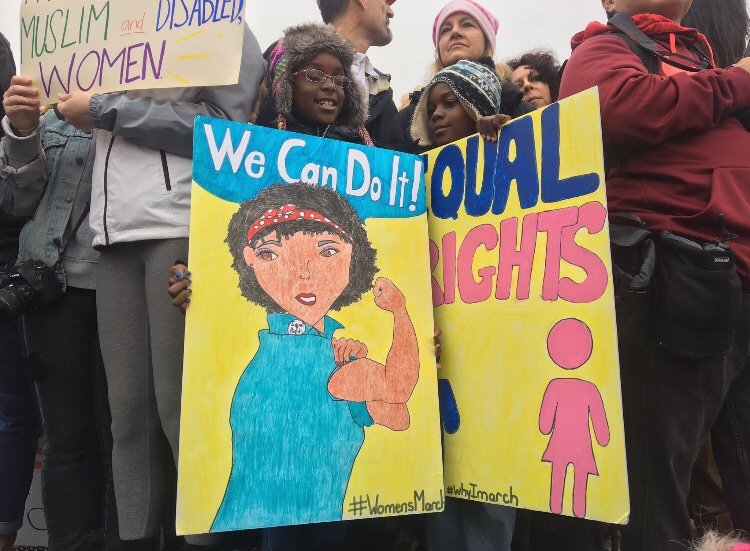 MUSLIM and DISABLED,
WOMEN
We Can Do It!
#WomensMarch
QUAL
RIGHTS
#whyImarch